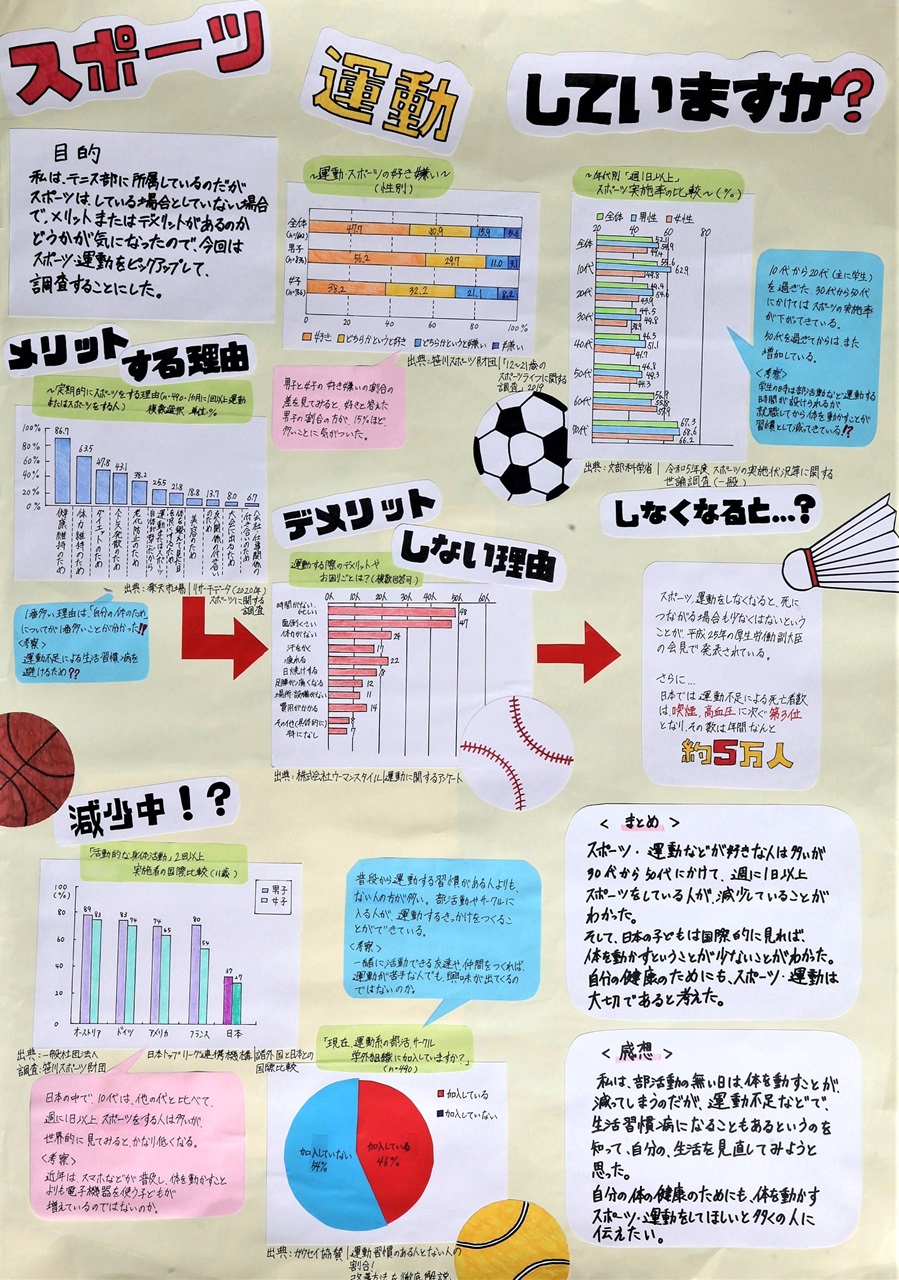 スポーツ
運動
していますか?
目的
私は、テニス部に所属しているのだが
スポーツは、している場合としていない場合
で、メリットまたはデメリットがあるのか
どうかが気になったので、今回は
スポーツ・運動をピックアップして、
調査することにした。
〜運動・スポーツの好き嫌い〜
(性別)
全体
47.7
30.9
15.9
男子
56.2
29.7
11.0
3.1
女子
38.2
32.2
21.1
8.2
0 20 40 60 80 100%
好き どちらかというと好き どちらかというと嫌い 嫌い
出典:笹川スポーツ財団|「12〜21歳の
スポーツライフに関する
調査」2019
男子と女子の好き嫌いの割合の
差を見てみると、好きと答えた
男子の割合の方が、15%ほど
多いことに気がついた。
〜年代別「週1日以上」
スポーツ実施率の比較〜(%)
全体 男性 女性
20 40 60 80
全体
10代
62.9
20代
30代
44.5
40代
46.3
51.1
41.7
50代
60代
70代
67.3
68.6
66.2
出典:文部科学省|令和5年度 スポーツの実施状況等に関する
世論調査(一般)
10代から20代(主に学生)
を過ぎた 30代から50代
にかけてはスポーツの実施率
が下がってきている。
50代を過ぎてからは、また
増加している。
<考察>
学生の時は部活動などと運動する
時間が設けられるが
就職してから体を動かすことが
習慣として減ってきている!?
メリット
する理由
〜定期的にスポーツをする理由(n=490・1か月に1回以上運動
またはスポーツをする人)
複数選択 単位:%
100%
80%
60%
40%
20%
0%
86.7 63.5 47.8 43.1 38.2 25.5 21.8 18.8 13.7 8.0 6.7
健康維持のため
体力維持のため
ダイエットのため
ストレス発散のため
老化防止のため
美容のため
大会に出るため
出典:楽天市場|リサーチデータ(2020年)
スポーツに関する
調査
1番多い理由は、「自分の体のため」
についてが1番多いことが分かった!!
<考察>
運動不足による生活習慣病を
避けるため??
デメリット
しない理由
運動する際のデメリットや
お困りごとは?(複数回答可)
0人 10人 20人 30人 40人 50人 60人
時間がない、忙しい 48
面倒くさい 47
体力がない 24
汗をかく 17
疲れる 22
日焼けする 18
足腰が痛くなる 12
場所・設備がない 11
費用がかかる 14
その他(具体的に)
特になし
出典:株式会社ウーマンスタイル|運動に関するアンケート
しなくなると…?
スポーツ、運動をしなくなると、死に
つながる場合も少なくはないという
ことが、平成25年の厚生労働副大臣
の会見で発表されている。
さらに…
日本では運動不足による死亡者数
は、喫煙、高血圧に次ぐ第3位
となり、その数は年間なんと
約5万人
減少中!?
「活動的な身体活動」2回以上
実施者の国際比較(11歳)
(%)
100
80
60
40
20
0
男子
女子
89 83 83 79 79 65 80 54 37 27
オーストリア ドイツ アメリカ フランス 日本
出典:一般社団法人 日本トップリーグ連携機構|諸外国と日本との
調査:笹川スポーツ財団 国際比較
日本の中で、10代は、他の代と比べて、
週に1日以上スポーツをする人は多いが、
世界的に見てみると、かなり低くなる。
<考察>
近年は、スマホなどが普及し、体を動かすこと
よりも電子機器を使う子どもが
増えているのではないのか。
普段から運動する習慣がある人よりも、
ない人の方が多い。部活動やサークルに
入る人が、運動するきっかけをつくるこ
とができている。
<考察>
一緒に活動できる友達や仲間をつくれば、
運動が苦手な人でも、興味が出てくるの
ではないのか。
「現在、運動系の部活・サークル
学外組織に加入していますか?」
(n=490)
加入している
加入していない
加入していない
54%
加入している
46%
出典:ガクセイ協賛|運動習慣のある人とない人の
割合!
まとめ
スポーツ・運動などが好きな人は多いが
30代から50代にかけて、週に1日以上
スポーツをしている人が、減少していることが
わかった。
そして、日本の子どもは国際的に見れば、
体を動かすということが少ないことがわかった。
自分の健康のためにも、スポーツ・運動は
大切であると考えた。
<感想>
私は、部活動の無い日は、体を動すことが
減ってしまうのだが、運動不足などで、
生活習慣病になることもあるというのを
知って、自分の、生活を見直してみようと
思った。
自分の体の健康のためにも、体を動かす
スポーツ・運動をしてほしいと多くの人に
伝えたい。